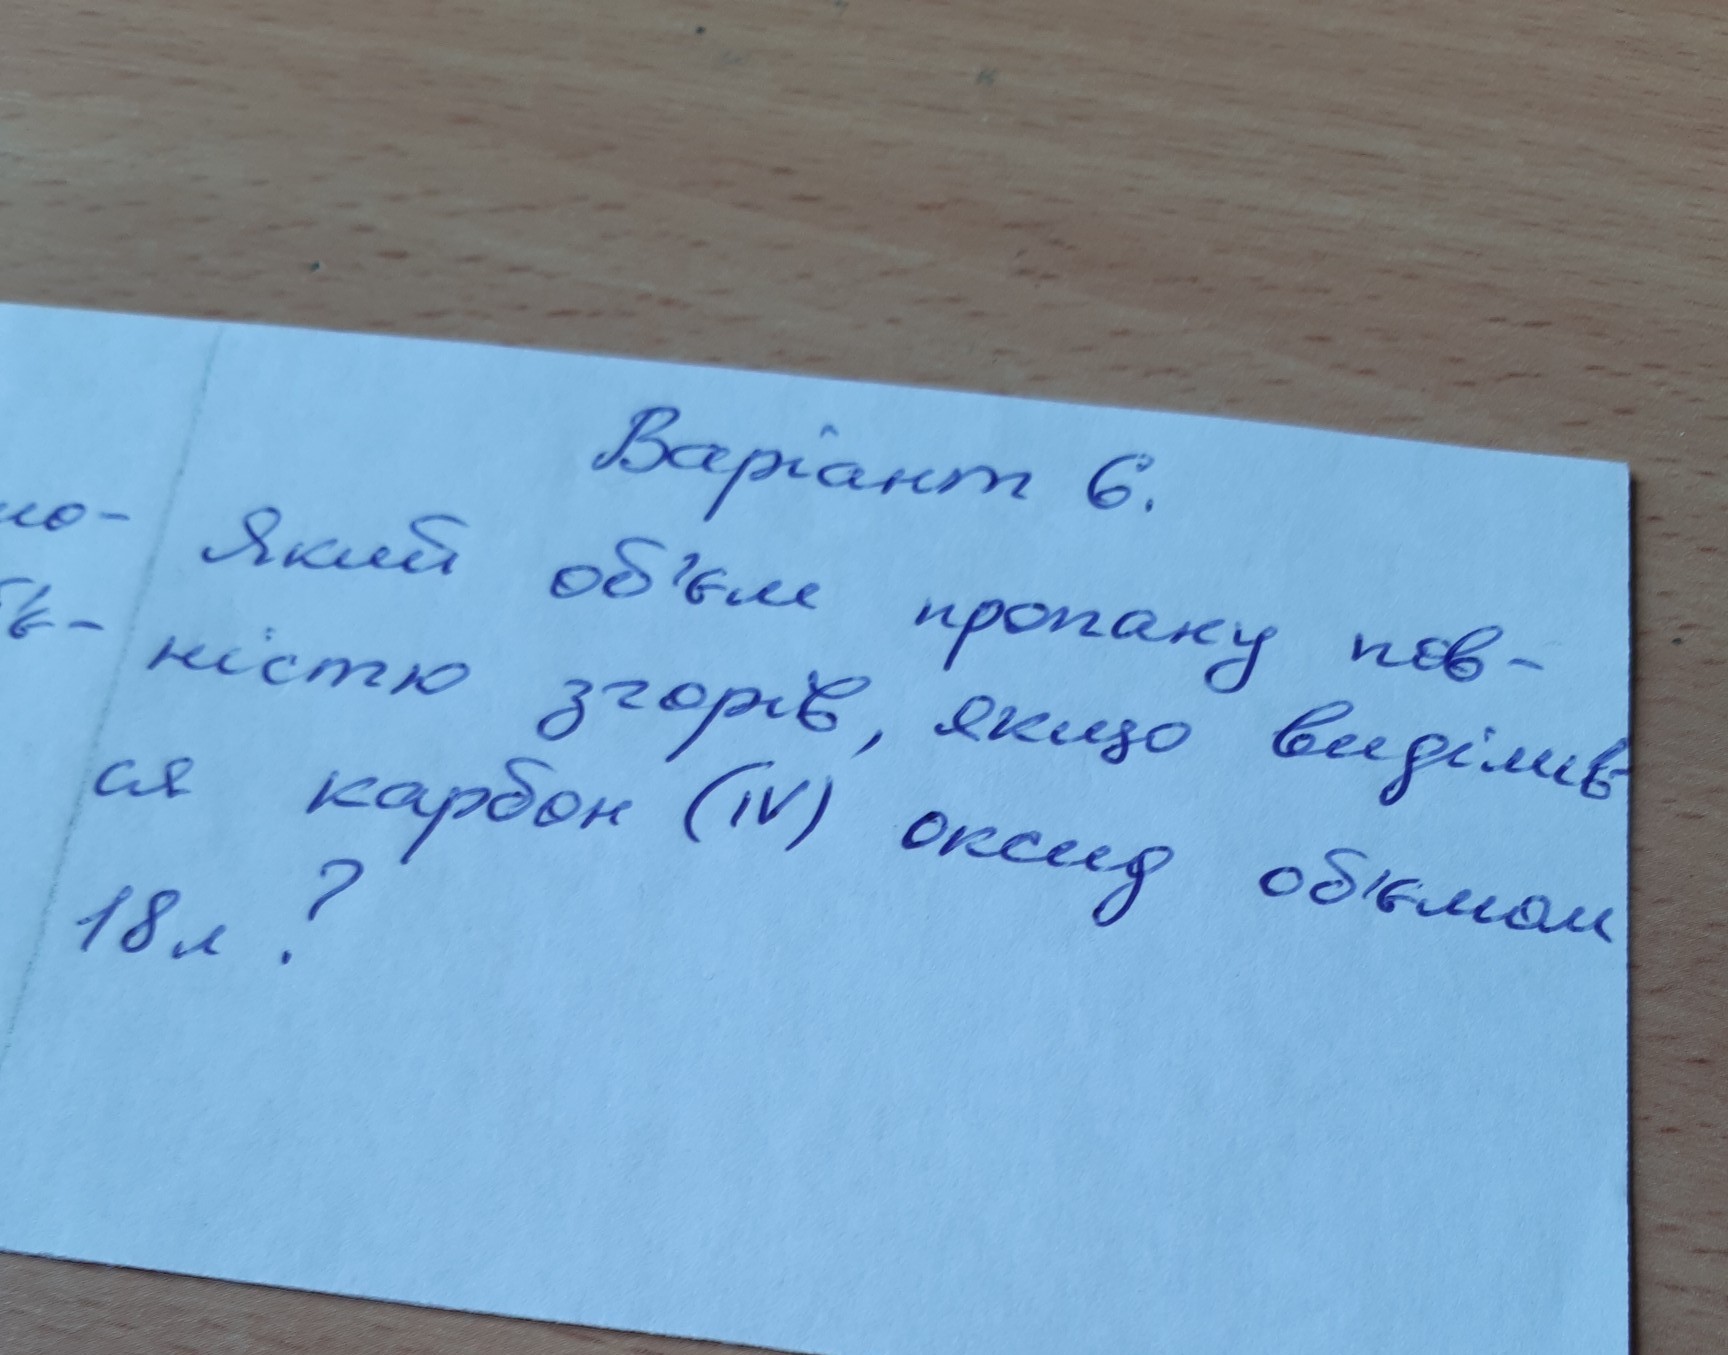 Варіант 6.
Який об'єм пропану пов-
ністю згорів, якщо виділив
ся карбон (IV) оксид об'ємом
18л.?